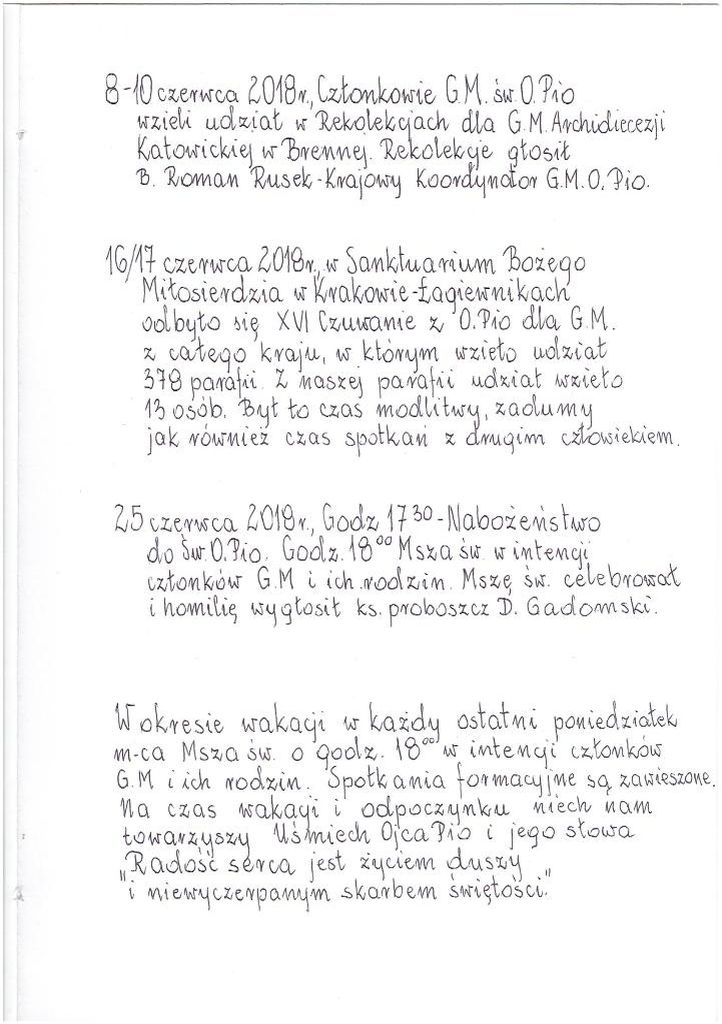 8-10 czerwca 2018r., Członkowie G.M. św. O. Pio
wzieli udział w Rekolekcjach dla G.M. Archidiecezji
Katowickiej w Brennej. Rekolekcje głosił
B. Roman Rusek - Krajowy Koordynator G.M.O. Pio.
16/17 czerwca 2018r., w Sanktuarium Bożego
Miłosierdzia w Krakowie-Łagiewnikach
odbyło się XVI Czuwanie z O. Pio dla G.M.
z całego kraju, w którym wzieło udział
378 parafii. Z naszej parafii udział wzieło
13 osób. Był to czas modlitwy, zadumy
jak również czas spotkań z drugim człowiekiem.
25 czerwca 2018r., Godz 17³⁰ - Nabożeństwo
do Św. O. Pio. Godz. 18⁰⁰ Msza św w intencji
członków G.M i ich rodzin. Mszę św. celebrował
i homilię wygłosił ks. proboszcz D. Gadomski.
W okresie wakacji w każdy ostatni poniedziałek
m-ca Msza św. o godz. 18⁰⁰ w intencji członków
G.M i ich rodzin. Spotkania formacyjne są zawieszone.
Na czas wakacji i odpoczynku niech nam
towarzyszy Uśmiech Ojca Pio i jego słowa
„Radość serca jest życiem duszy
"i niewyczerpanym skarbem świętości."